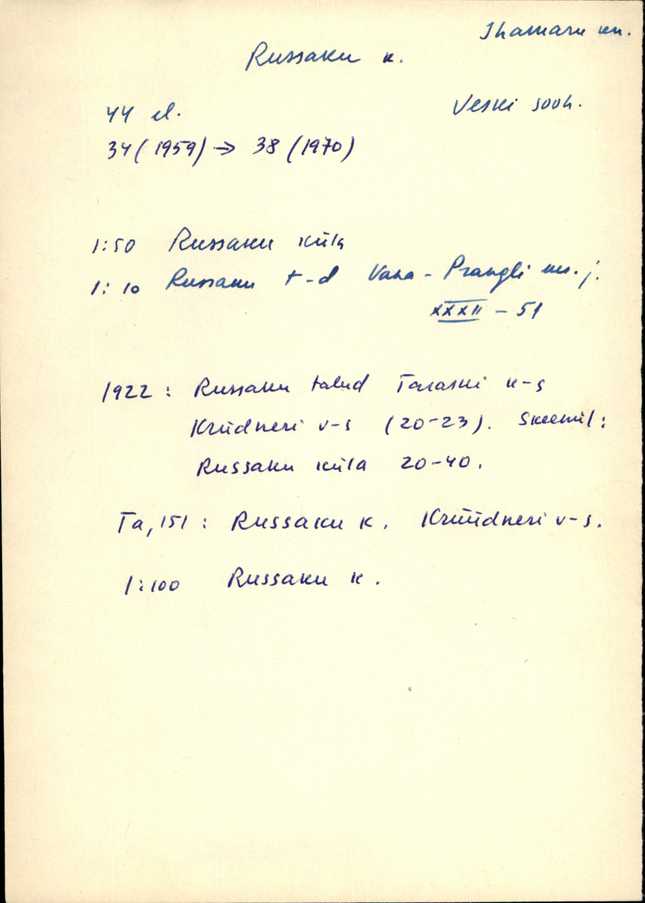 Ihamaru kn.
Russaku k.
44 el.
Veski sooh.
34 (1959) → 38 (1970)
1:50 Russaku küla
1:10 Russaku t-d Vana-Prangli ms. j.
XXXII - 51
1922: Russaku talud Taraski k-s
Krüdneri v-s (20-23). Skeemil:
Russaku küla 20-40.
Ta, 151: Russaku k. Krüüdneri v-s.
1:100 Russaku k.